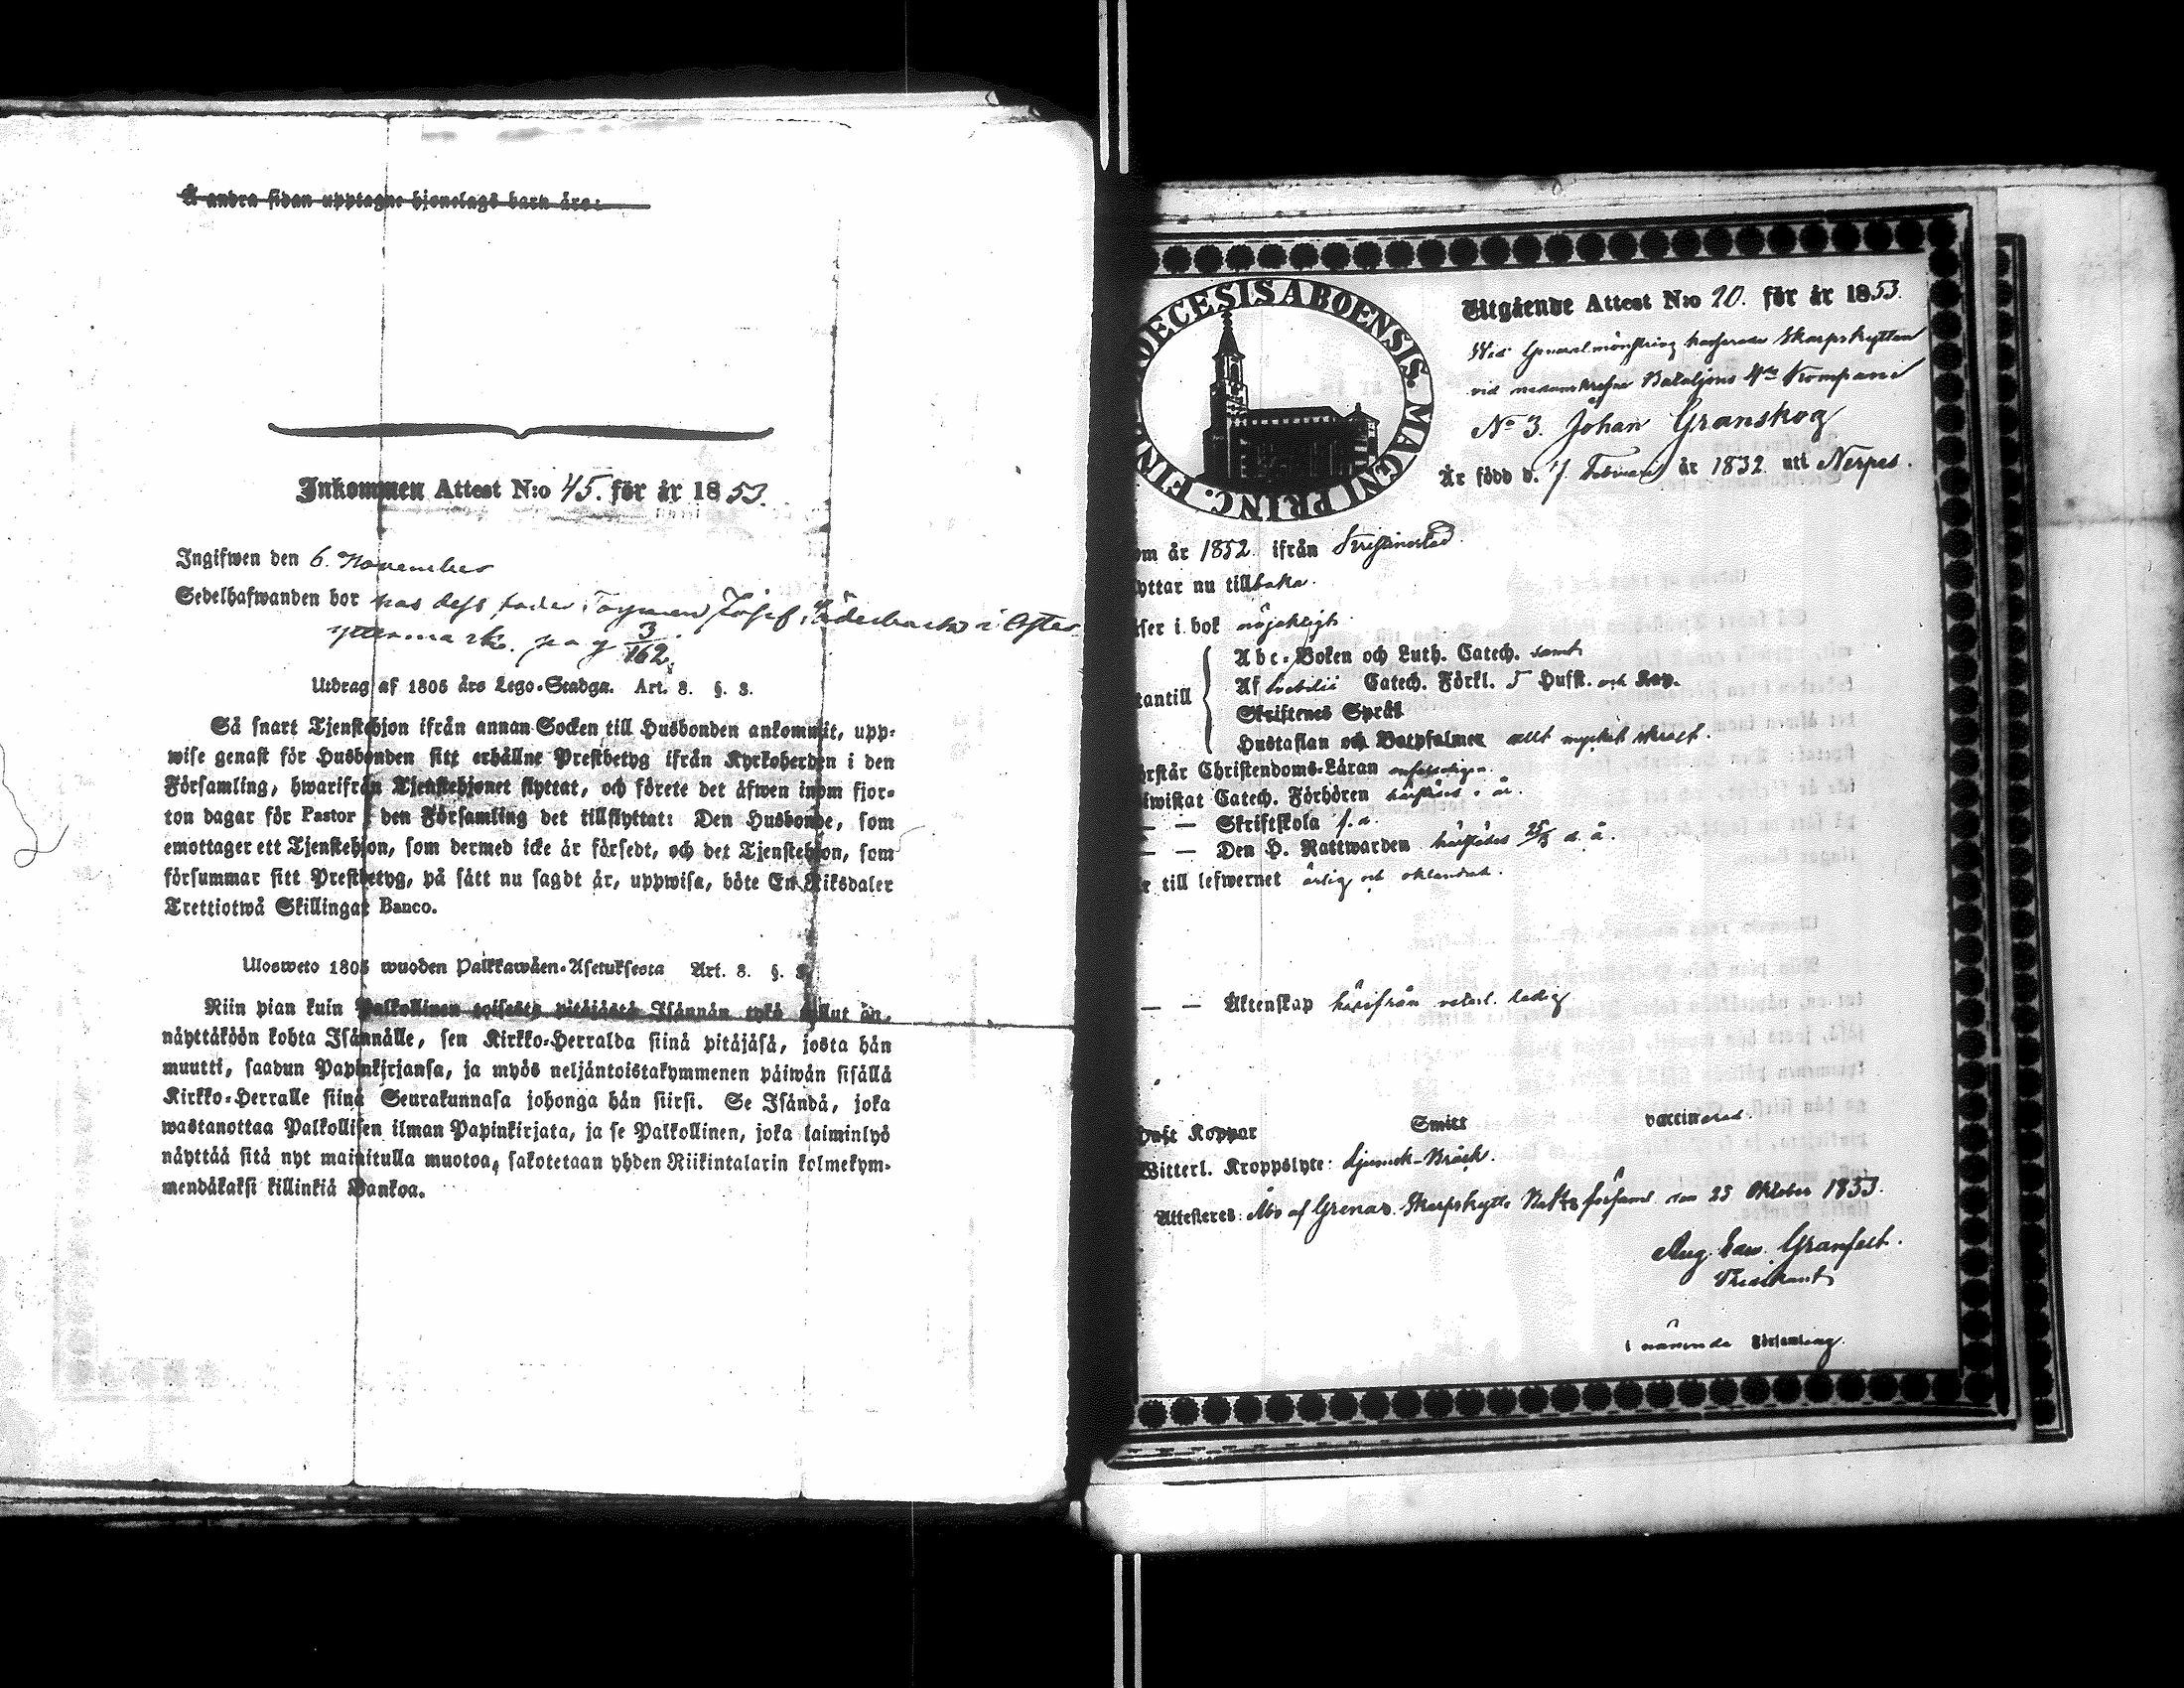 Å andra sidan upptagne hjonelags barn äro:
Inkommen Attest N:o 45. för år 1853.
Ingifwen den 6. November
Sedelhafwanden bor hos dess fader Torparen Josef Söderback i Öfter
yttermark. pag 3/162.
Utdrag af 1805 års Lego-Stadga. Art. 8. §. 8.
Så snart Tjenstehjon ifrån annan Socken till Husbonden ankommit, upp-
wise genast för Husbonden sitt erhållne Prestbetyg ifrån Kyrkoherden i den
Församling, hwarifrån Tjenstehjonet flyttat, och förete det äfwen inom fjor-
ton dagar för Pastor i den Församling det tillflyttat: Den Husbonde, som
emottager ett Tjenstehjon, som dermed icke är försedt, och det Tjenstehjon, som
försummar sitt Prestbetyg, på sätt nu sagdt är, uppwisa, böte En Riksdaler
Trettiotwå Skillingar Banco.
Ulosweto 1805 wuoden Palkkawäen-Asetuksesta Art. 8. §. 8.
Niin pian kuin Palkollinen toisesta pitäjästä Isännän tykö tullut on,
näyttäköön kohta Isännälle, sen Kirkko-Herralda siinä pitäjäsä, josta hän
muutti, saadun Papinkirjansa, ja myös neljäntoistakymmenen päiwän sisällä
Kirkko-Herralle siinä Seurakunnasa johonga hän siirsi. Se Isändä, joka
wastanottaa Palkollisen ilman Papinkirjata, ja se Palkollinen, joka laiminlyö
näyttää sitä nyt mainitulla muotoa, sakotetaan yhden Riikintalarin kolmekym-
mendäkaksi killinkiä Bankoa.
DECESIS ABOENSIS. MAGNI PRINC. FIN
Utgående Attest N:o 20. för år 1853.
Wid Generalmönstring kasserade Skarpskytten
vid nedanskrefne Bataljons 4de Kompani
No 3. Johan Granskog
Är född d. 7 Februari år 1832 uti Nerpes.
om år 1852 ifrån Kristinestad
yttar nu tillbaka.
äser i bok nöjaktigt
Abc-Boken och Luth. Catech. samt
Af Svebilii Catech. Förkl. 5 Hufst. och Rop.
Skriftenes Språk
Hustaflan och Botpsalmer allt mycket svagt.
tantill
örstår Christendoms-Läran
iwistat Catech. Förhören härstädes i år.
— — Skriftskola f. å.
— — Den H. Nattwarden härstädes 25/9 d. å.
e till lefwernet ärlig och oklandrad.
— — Äktenskap härifrån veterl. ledig
Haft Koppor Smitt vaccinerad.
Witterl. Kroppslyte: Ljumsk-Bråck.
Attesteres: Åbo af Grenad. Skarpskytte Bat:s församl. den 25 Oktober 1853.
Aug. Edw. Granfelt.
Predikant
i nämnde Församling.